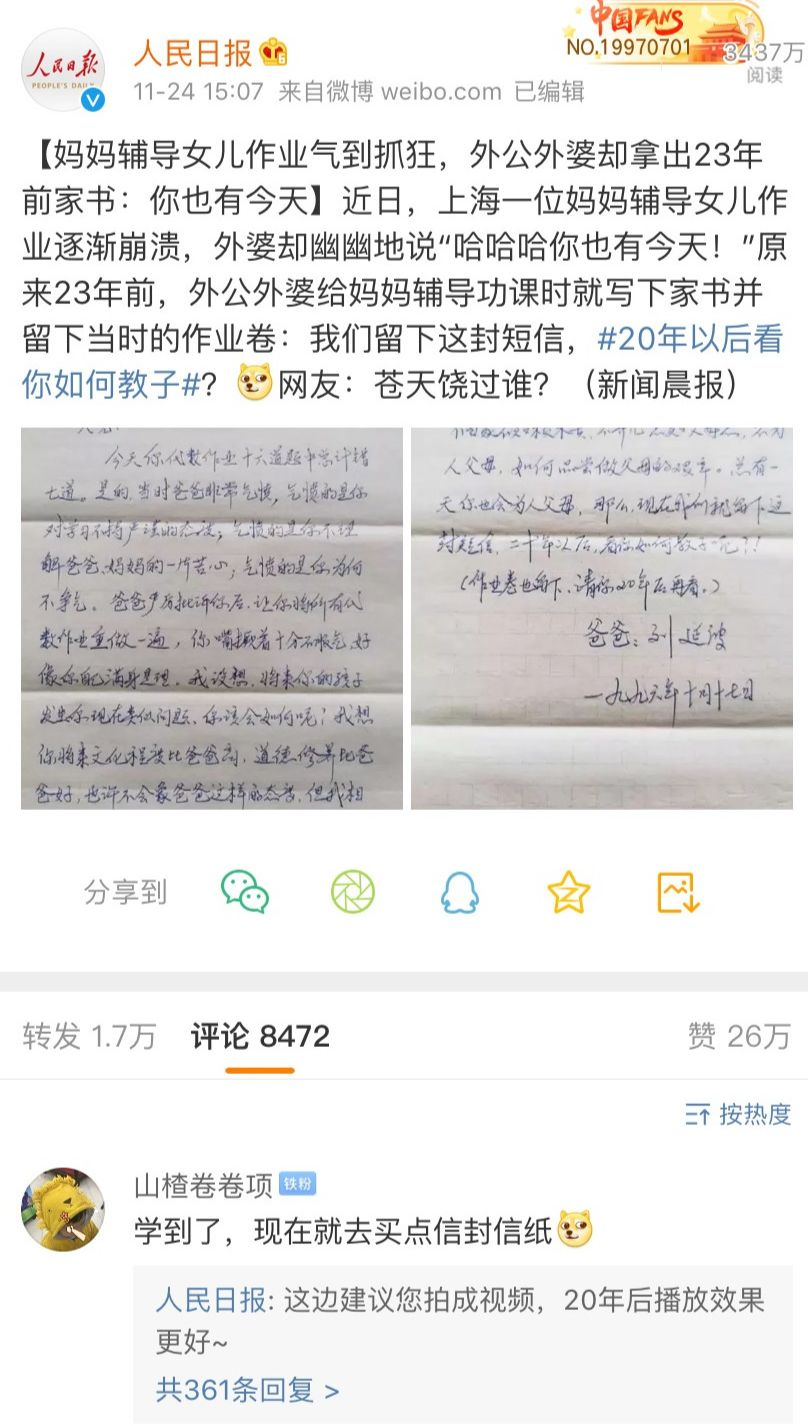 人民日报
PEOPLE'S DAILY
人民日报
中国FANS
NO.19970701
3437万
阅读
11-24 15:07 来自微博 weibo.com 已编辑
【妈妈辅导女儿作业气到抓狂，外公外婆却拿出23年
前家书：你也有今天】近日，上海一位妈妈辅导女儿作
业逐渐崩溃，外婆却幽幽地说“哈哈哈你也有今天！”原
来23年前，外公外婆给妈妈辅导功课时就写下家书并
留下当时的作业卷：我们留下这封短信，#20年以后看
你如何教子#？网友：苍天饶过谁？（新闻晨报）
今天你代数作业十六道题中总计错
七道。是的，当时爸爸非常气愤，气愤的是你
对学习不持严谨的态度；气愤的是你不理
解爸爸、妈妈的一片苦心；气愤的是你为何
不争气。爸爸严厉批评你后，让你将所有代
数作业重做一遍，你嘴撅着十分不服气，好
像你配满身是理。我设想，将来你的孩子
发生你现在类似问题，你该会如何呢？我想
你将来文化程度比爸爸高，道德修养比爸
爸好，也许不会象爸爸这样的态度，但我相
人父母，如何品尝做父母的艰辛。总有一
天你也会为人父母，那么，现在我们就留下这
封短信，二十年以后，看你如何教子呢？！
（作业卷也留下，请你20年后再看。）
爸爸：刘延波
一九九六年十月十七日
分享到
转发 1.7万 评论 8472 赞 26万
按热度
山楂卷卷项 铁粉
学到了，现在就去买点信封信纸
人民日报: 这边建议您拍成视频，20年后播放效果
更好~
共361条回复 >